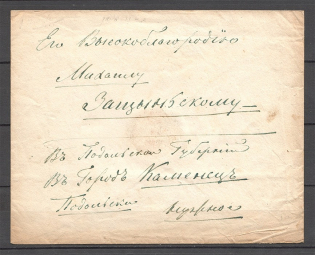 Его Высокоблагородію
Михаилу
Защыньскому
Въ Подольской Губерніи
Въ Городъ Каменецъ
Подольскій